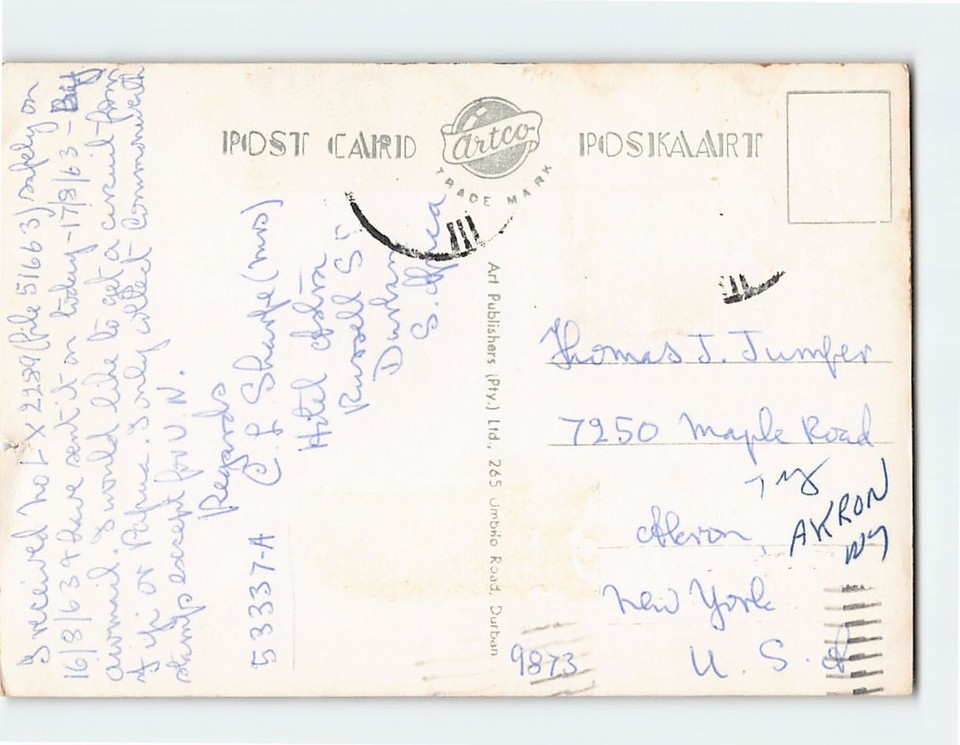 POST CARD
Artco
TRADE MARK
POSKAART
I received No L-X2289 (file 5/663) safely on
16/8/63 & have sent it on today - 17/8/63 - By
airmail. I would like to get a circuit from
Fiji or Papua. I only collect Commonwealth
stamps except for U.N.
Regards
C. L Sharpe (Mrs)
Hotel
Russell St
Durban
S. Africa
53337-A
Art Publishers (Pty.) Ltd., 265 Umbilo Road, Durban
Thomas J. Jumper
7250 Maple Road
Akron,
New York
U. S. A
Try
AKRON
NY
9873